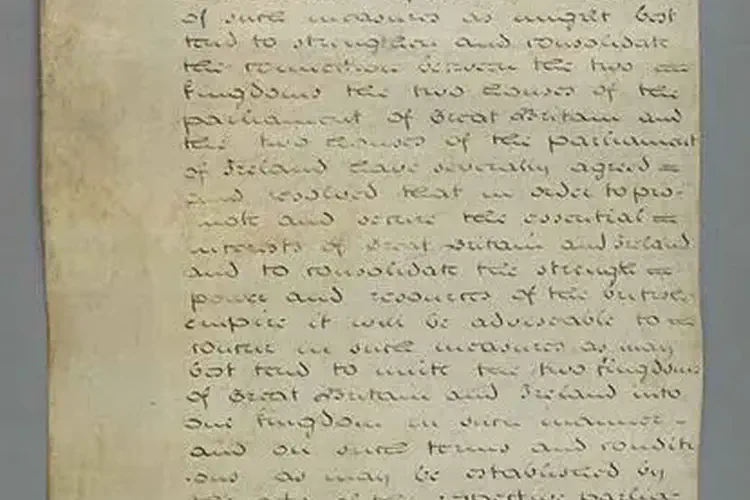 of such measures as might best
tend to strengthen and consolidate
the connection between the two
kingdoms the two houses of the
parliament of Great Britain and
the two houses of the parliament
of Ireland have severally agreed
and resolved that in order to pro-
mote and secure the essential
interests of Great Britain and Ireland
and to consolidate the strength
power and resources of the british
empire it will be adviseable to
concur in such measures as may
best tend to unite the two kingdoms
of Great Britain and Ireland into
one kingdom in such manner
and on such terms and conditi
ons as may be established by
the acts of the respective parliam